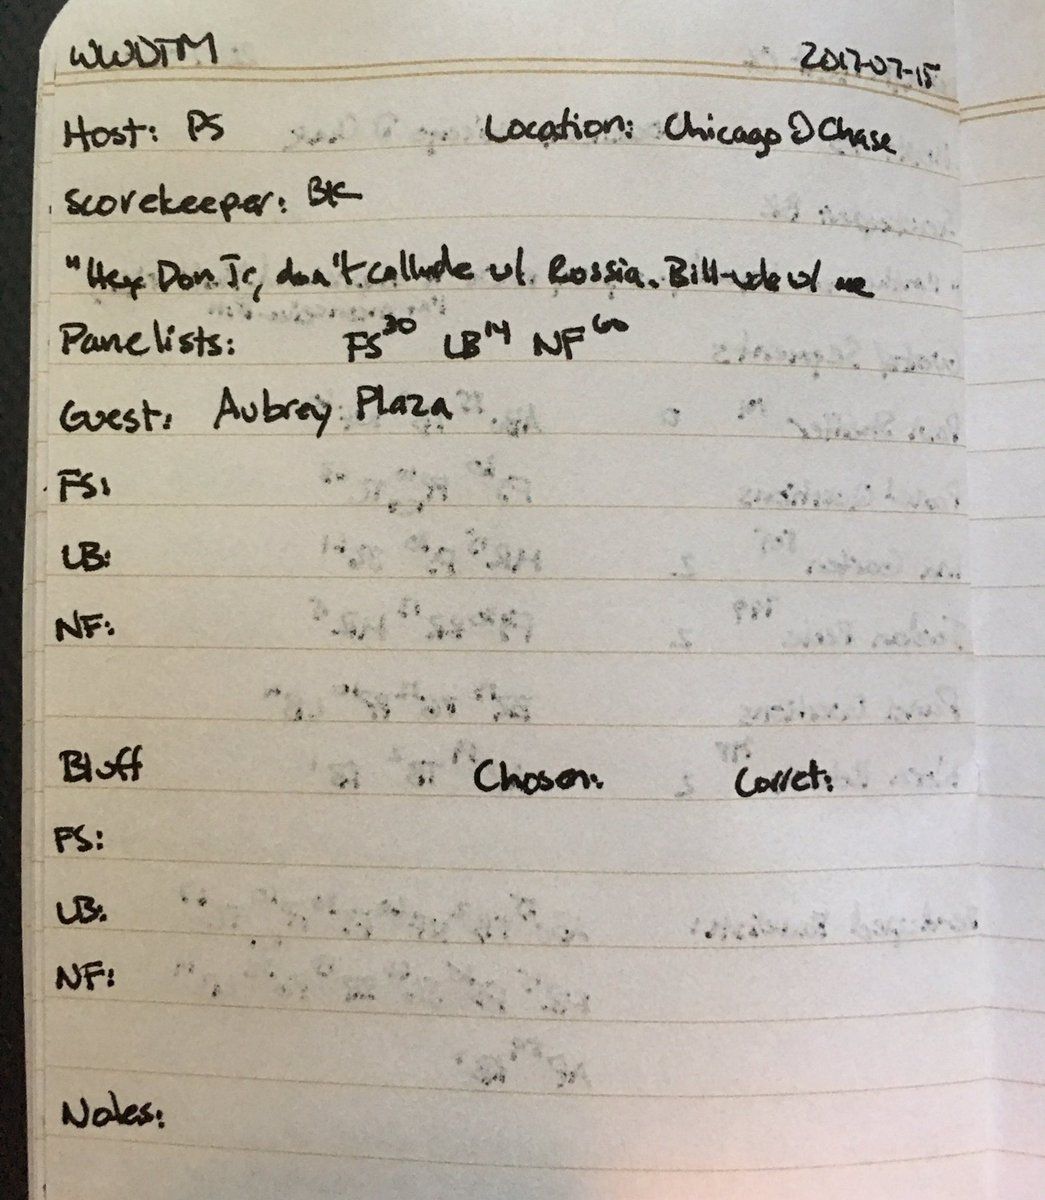 WWDTM 2017-07-15
Host: PS Location: Chicago Chase
Scorekeeper: BK
"Hey Don Jr, don't collude w/ Russia. Bill-ude w/ me
Panelists: FS30 LB14 NF60
Guest: Aubrey Plaza
FS:
LB:
NF:
Bluff Chosen: Correct:
FS:
LB:
NF:
Notes: